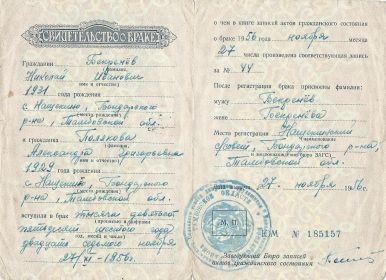 СВИДЕТЕЛЬСТВО о БРАКЕ
Гражданин Бокренёв
(фамилия)
Николай Иванович
(имя и отчество)
1931 года рождения
с Нащекино, Бондарского
р-на, Тамбовской обл.
и гражданка Полякова
(фамилия)
Александра Григорьевна
(имя и отчество)
1929 года рождения
с Нащекино, Бондарского
р-на, Тамбовской обл.
вступили в брак тысяча девятьсот
пятьдесят шестого года
двадцать седьмого ноября
27/XI-1956г.
о чем в книге записей актов гражданского состояния
о браке 1956 года ноября месяца
27 числа произведена соответствующая запись
за № 44
После регистрации брака присвоены фамилии:
мужу Бокренёв
жене Бокренёва
Место регистрации Нащекинский
Бондарского р-на
Тамбовской обл.
27 ноября 1956г.
М. П.
IОМ № 185157
Заведующий Бюро записей
актов гражданского состояния